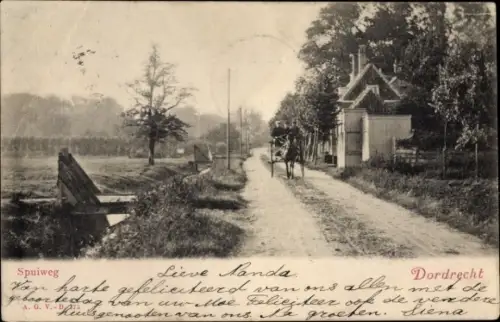 Spuiweg
Lieve Nanda
Dordrecht
Van harte gefeliciteerd van ons allen met de
geboortedag van uw Moe Feliciteer ook de verdere
A. G. V. - D. 175
huisgenooten van ons Na groeten. Siena